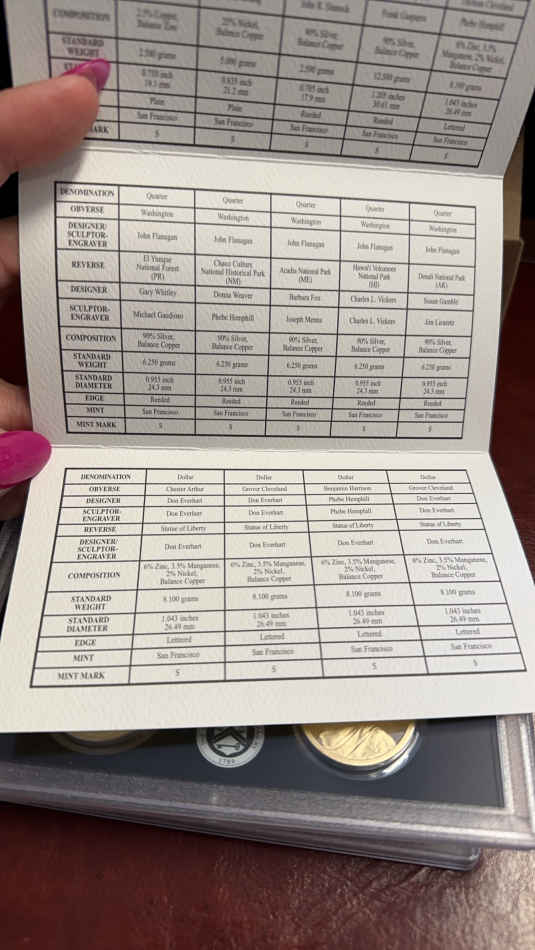 John R. Sinnock
Frank Gasparro
Phebe Hemphill
COMPOSITION
2.5% Copper,
Balance Zinc
25% Nickel,
Balance Copper
90% Silver,
Balance Copper
90% Silver,
Balance Copper
6% Zinc, 3.5%
Manganese, 2% Nickel,
Balance Copper
STANDARD
WEIGHT
2.500 grams
5.000 grams
2.500 grams
12.500 grams
8.100 grams
0.750 inch
19.1 mm
0.835 inch
21.2 mm
0.705 inch
17.9 mm
1.205 inches
30.61 mm
1.043 inches
26.49 mm
Plain
Plain
Reeded
Reeded
Lettered
San Francisco
San Francisco
San Francisco
San Francisco
San Francisco
MARK
S
S
S
S
S
DENOMINATION
Quarter
Quarter
Quarter
Quarter
Quarter
OBVERSE
Washington
Washington
Washington
Washington
Washington
DESIGNER/
SCULPTOR-
ENGRAVER
John Flanagan
John Flanagan
John Flanagan
John Flanagan
John Flanagan
REVERSE
El Yunque
National Forest
(PR)
Chaco Culture
National Historical Park
(NM)
Acadia National Park
(ME)
Hawai'i Volcanoes
National Park
(HI)
Denali National Park
(AK)
DESIGNER
Gary Whitley
Donna Weaver
Barbara Fox
Charles L. Vickers
Susan Gamble
SCULPTOR-
ENGRAVER
Michael Gaudioso
Phebe Hemphill
Joseph Menna
Charles L. Vickers
Jim Licaretz
COMPOSITION
90% Silver,
Balance Copper
90% Silver,
Balance Copper
90% Silver,
Balance Copper
90% Silver,
Balance Copper
90% Silver,
Balance Copper
STANDARD
WEIGHT
6.250 grams
6.250 grams
6.250 grams
6.250 grams
6.250 grams
STANDARD
DIAMETER
0.955 inch
24.3 mm
0.955 inch
24.3 mm
0.955 inch
24.3 mm
0.955 inch
24.3 mm
0.955 inch
24.3 mm
EDGE
Reeded
Reeded
Reeded
Reeded
Reeded
MINT
San Francisco
San Francisco
San Francisco
San Francisco
San Francisco
MINT MARK
S
S
S
S
S
DENOMINATION
Dollar
Dollar
Dollar
Dollar
OBVERSE
Chester Arthur
Grover Cleveland
Benjamin Harrison
Grover Cleveland
DESIGNER
Don Everhart
Don Everhart
Phebe Hemphill
Don Everhart
SCULPTOR-
ENGRAVER
Don Everhart
Don Everhart
Phebe Hemphill
Don Everhart
REVERSE
Statue of Liberty
Statue of Liberty
Statue of Liberty
Statue of Liberty
DESIGNER/
SCULPTOR-
ENGRAVER
Don Everhart
Don Everhart
Don Everhart
Don Everhart
COMPOSITION
6% Zinc, 3.5% Manganese,
2% Nickel,
Balance Copper
6% Zinc, 3.5% Manganese,
2% Nickel,
Balance Copper
6% Zinc, 3.5% Manganese,
2% Nickel,
Balance Copper
6% Zinc, 3.5% Manganese,
2% Nickel,
Balance Copper
STANDARD
WEIGHT
8.100 grams
8.100 grams
8.100 grams
8.100 grams
STANDARD
DIAMETER
1.043 inches
26.49 mm
1.043 inches
26.49 mm
1.043 inches
26.49 mm
1.043 inches
26.49 mm
EDGE
Lettered
Lettered
Lettered
Lettered
MINT
San Francisco
San Francisco
San Francisco
San Francisco
MINT MARK
S
S
S
S
1789